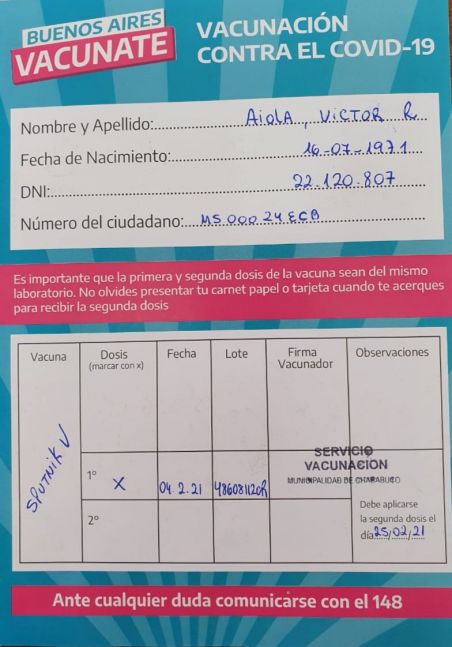 BUENOS AIRES
VACUNATE
VACUNACIÓN
CONTRA EL COVID-19
Nombre y Apellido: Aiola, Victor R.
Fecha de Nacimiento: 16-07-1971
DNI: 22.120.807
Número del ciudadano: MS 000 24 ECB
Es importante que la primera y segunda dosis de la vacuna sean del mismo
laboratorio. No olvides presentar tu carnet papel o tarjeta cuando te acerques
para recibir la segunda dosis
Vacuna Dosis Fecha Lote Firma Observaciones
(marcar con x) Vacunador
SPUTNIK V
SERVICIO
VACUNACION
MUNICIPALIDAD DE CHACABUCO
1° X 04.2.21 486081120R
2°
Debe aplicarse
la segunda dosis el
día 25/02/21
Ante cualquier duda comunicarse con el 148